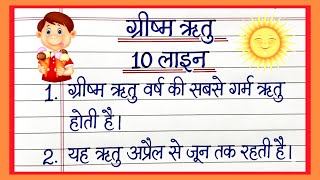 ग्रीष्म ऋतु
10 लाइन
1. ग्रीष्म ऋतु वर्ष की सबसे गर्म ऋतु
होती है।
2. यह ऋतु अप्रैल से जून तक रहती है।